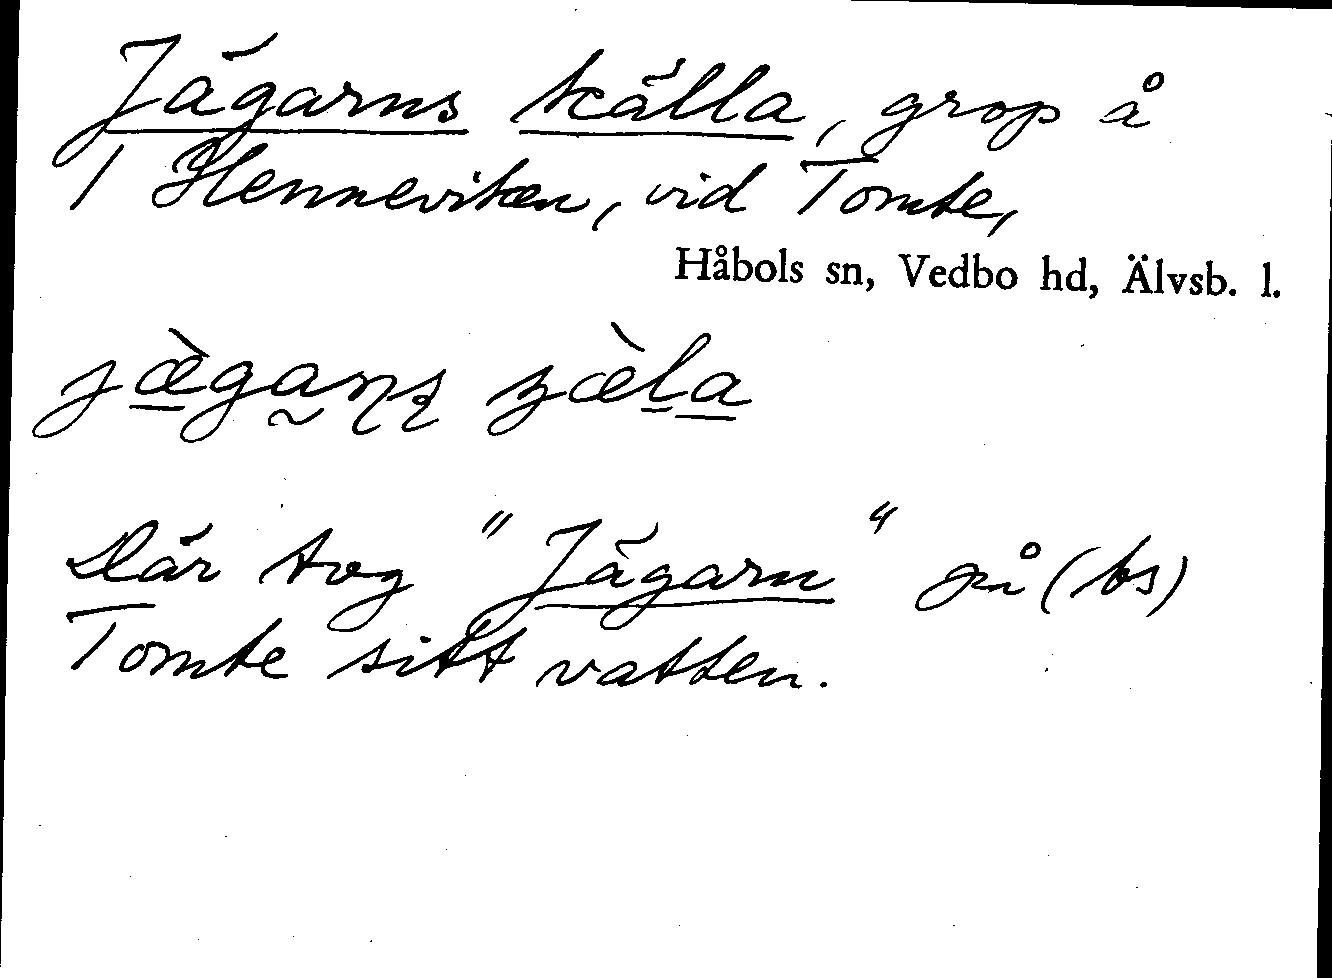 Jägarns källa, grop å
1 Henneviken, vid Tomte,
Håbols sn, Vedbo hd, Älvsb. l.
Där tog "Jägarn" på (bs)
Tomte sitt vatten.